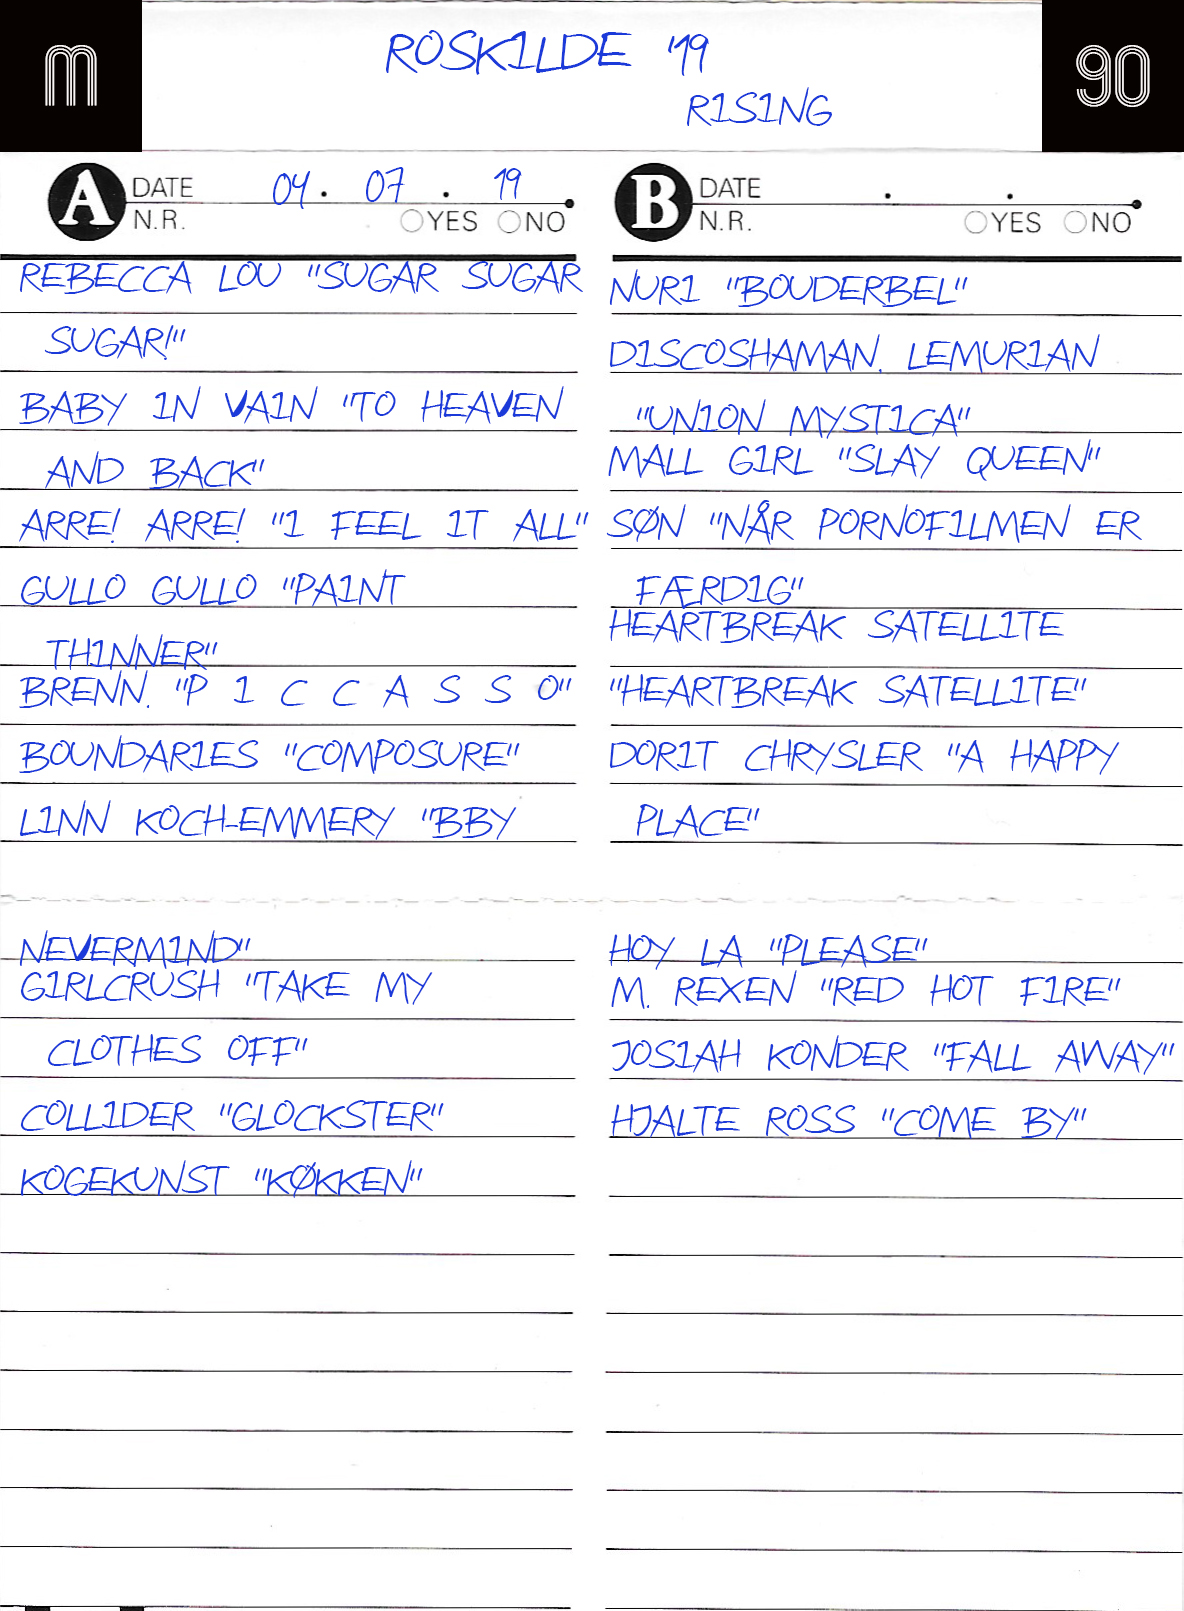 m
ROSKILDE '19
90
RISING
A DATE 04 . 07 . 19
N.R. YES NO
REBECCA LOU "SUGAR SUGAR
SUGAR!"
BABY IN VAIN "TO HEAVEN
AND BACK"
ARRE! ARRE! "I FEEL IT ALL"
GULLO GULLO "PAINT
THINNER"
BRENN. "P I C C A S S O"
BOUNDARIES "COMPOSURE"
LINN KOCH-EMMERY "BBY
NEVERMIND"
GIRLCRUSH "TAKE MY
CLOTHES OFF"
COLLIDER "GLOCKSTER"
KOGEKUNST "KØKKEN"
B DATE . .
N.R. YES NO
NURI "BOUDERBEL"
DISCOSHAMAN. LEMURIAN
"UNION MYSTICA"
MALL GIRL "SLAY QUEEN"
SØN "NÅR PORNOFILMEN ER
FÆRDIG"
HEARTBREAK SATELLITE
"HEARTBREAK SATELLITE"
DORIT CHRYSLER "A HAPPY
PLACE"
HOY LA "PLEASE"
M. REXEN "RED HOT FIRE"
JOSIAH KONDER "FALL AWAY"
HJALTE ROSS "COME BY"